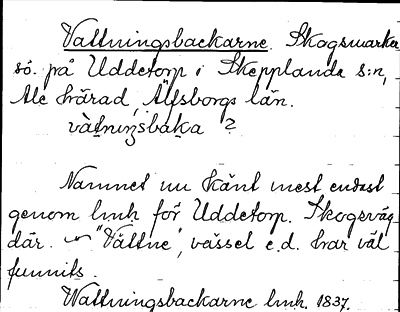 Vattningsbackarne. Skogsmarker
sö. på Uddetorp i Skepplanda s:n,
Ale härad, Älfsborgs län.
vàtniŋsbáka ?
Namnet nu känt mest endast
genom lmk för Uddetorp. Skogsväg
där. "Vättne", vässel e.d. har väl
funnits.
Wattningsbackarne lmk. 1837.